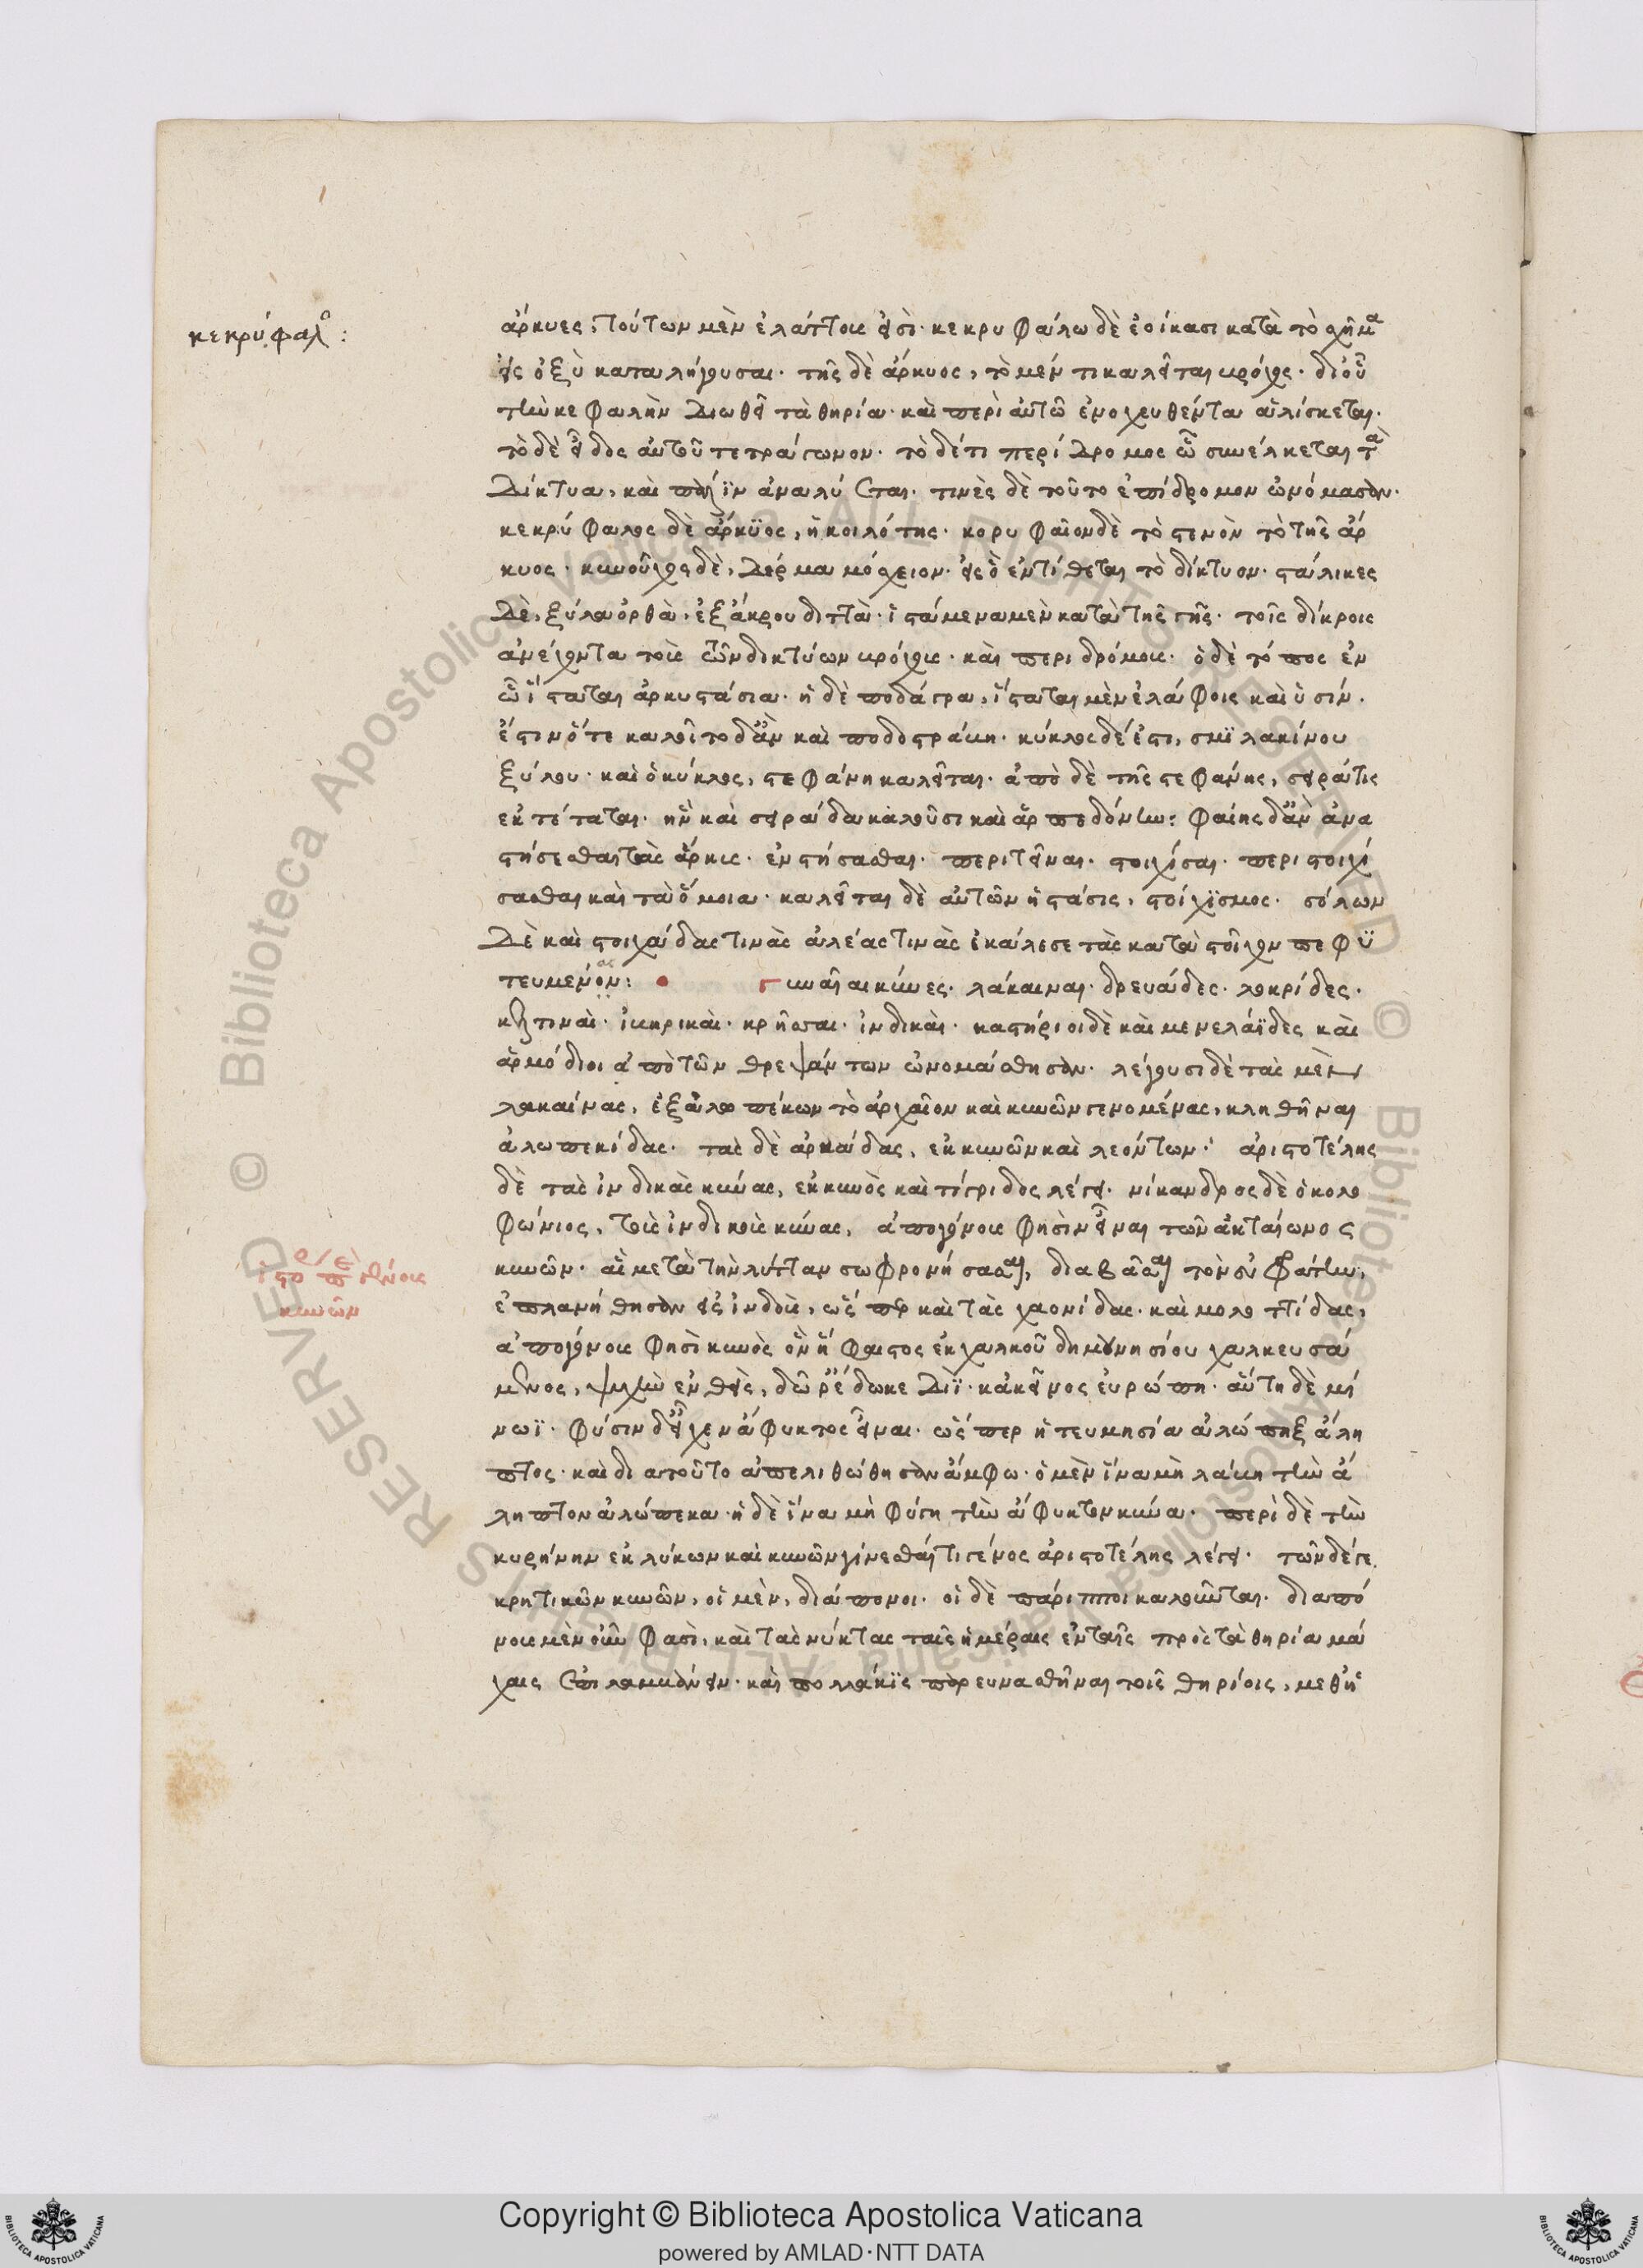 κεκρύφαλος:
ἄρκυες, τούτων μὲν ἐλάττους εἰσὶ· κεκρυφάλω δὲ ἐοίκασι κατὰ τὸ σχῆμα
εἰς ὀξὺ καταλήγουσαι· τῆς δὲ ἄρκυος, τὸ μέν τι καλεῖται βρόχος· δι' οὗ
τὴν κεφαλὴν διωθεῖ τὰ θηρία· καὶ περὶ αὐτῶ ἐνοχευθέντα ἁλίσκεται·
τὸ δὲ εἶδος αὐτοῦ τετράγωνον· τὸ δέ τι περίδρομος ὧ συνέλκεται τὰ
δίκτυα, καὶ πάλιν ἀναλύεται· τινὲς δὲ τοῦτο ἐπίδρομον ὠνόμασαν·
κεκρύφαλος δὲ ἄρκϋος, ἡ κοιλότης· κορυφαῖον δὲ τὸ στενὸν τὸ τῆς ἄρ
κυος· κυνοῦχος δὲ, δέρμα μόσχειον· εἰς ὃ ἐντίθεται τὸ δίκτυον· στάλικες
δὲ, ξύλα ὀρθὰ, ἐξ ἄκρου διττὰ· ἱστάμενα μὲν κατὰ τῆς γῆς· τοῖς δίκροις
ἀνέχοντα τοὺς τῶν δικτύων βρόχους· καὶ περιδρόμους· ὁ δὲ τόπος ἐν
ὧ ἵσταται ἀρκυστάσια· ἡ δὲ ποδάγρα, ἵσταται μὲν ἐλάφοις καὶ ὑσίν·
ἔστιν ὅτε καλοῖτο δ' ἂν καὶ ποδοστράβη· κύκλος δέ ἐστι, σμϊλακίνου
ξύλου· καὶ ὁ κύκλος, στεφάνη καλεῖται· ἀπὸ δὲ τῆς στεφάνης, σειράτις
ἐκτέταται· ἣν καὶ σειράδα καλοῦσι καὶ ἁρπεδόνην: φαίης δ' ἂν ἀνα
στήσεσθαι τὰς ἄρκυς· ἐνστήσασθαι· περιτεῖναι· στοιχίσαι· περιστοιχί
σασθαι καὶ τὰ ὅμοια· καλεῖται δὲ αὐτῶν ἡ στάσις, στοίχϊσμος· σόλων
δὲ καὶ στοιχάδας τινὰς ἀλέας τινὰς ἐκάλεσε τὰς κατὰ στοῖχον πεφϋ
τευμένον: Γενναῖαι κύνες· λάκαιναι· ἀρκάδες· λοκρίδες·
κελτικαὶ· ἰβηρικαὶ· κρῆσσαι· ἰνδικαὶ· καστόριοι δὲ καὶ μενελάϊδες καὶ
ἁρμόδιοι ἀπὸ τῶν θρεψάντων ὠνομάσθησαν· λέγουσι δὲ τὰς μὲν
λακαίνας, ἐξ ἀλωπέκων τὸ ἀρχαῖον καὶ κυνῶν γενομένας, κληθῆναι
ἀλωπεκίδας· τὰς δὲ ἀρκάδας, ἐκ κυνῶν καὶ λεόντων· ἀριστοτέλης
δὲ τὰς ἰνδικὰς κύνας, ἐκ κυνὸς καὶ τίγριδος λέγει· νίκανδρος δὲ ὁ κολο
φώνιος, τοὺς ἰνδικοὺς κύνας, ἀπογόνους φησὶν εἶναι τῶν ἀκταίωνος
ἱστορία περὶ γένους
κυνῶν
κυνῶν· αἳ μετὰ τὴν λύτταν σωφρονήσασαι, διαβᾶσαι τὸν εὐφράτην,
ἐπλανήθησαν εἰς ἰνδοὺς, ὥσπερ καὶ τὰς χαονίδας· καὶ μολοττίδας,
ἀπογόνους φησὶ κυνὸς ὃν ἥφαιστος ἐκ χαλκοῦ δημονησίου χαλκευσά
μενος, ψυχὴν ἐνθεὶς, δῶρον ἔδωκε διϊ· κἀκεῖνος εὐρώπη· αὕτη δὲ μί
νωϊ· φύσιν δ' εἶχεν ἄφυκτος εἶναι· ὥσπερ ἡ τευμησία ἀλώπηξ ἄλη
πτος· καὶ διατοῦτο ἀπελιθώθησαν ἄμφω· ὁ μὲν ἵνα μὴ λάβη τὴν ἄ
ληπτον ἀλώπεκα· ἡ δὲ ἵνα μὴ φύγη τὴν ἄφυκτον κύνα· περὶ δὲ τὴν
κυρήνην ἐκ λύκων καὶ κυνῶν γίνεσθαί τι γένος ἀριστοτέλης λέγει· τῶν δέ γε
κρητικῶν κυνῶν, οἱ μὲν, διάπονοι· οἱ δὲ πάριπποι καλοῦνται· διαπό
νους μὲν οὖν φασὶ, καὶ τὰς νύκτας ταῖς ἡμέραις ἐν ταῖς πρὸς τὰ θηρία μά
χαις ἐπιλαμβάνειν· καὶ πολλάκϊς παρευνασθῆναι τοῖς θηρίοις, μεθ' ἡ